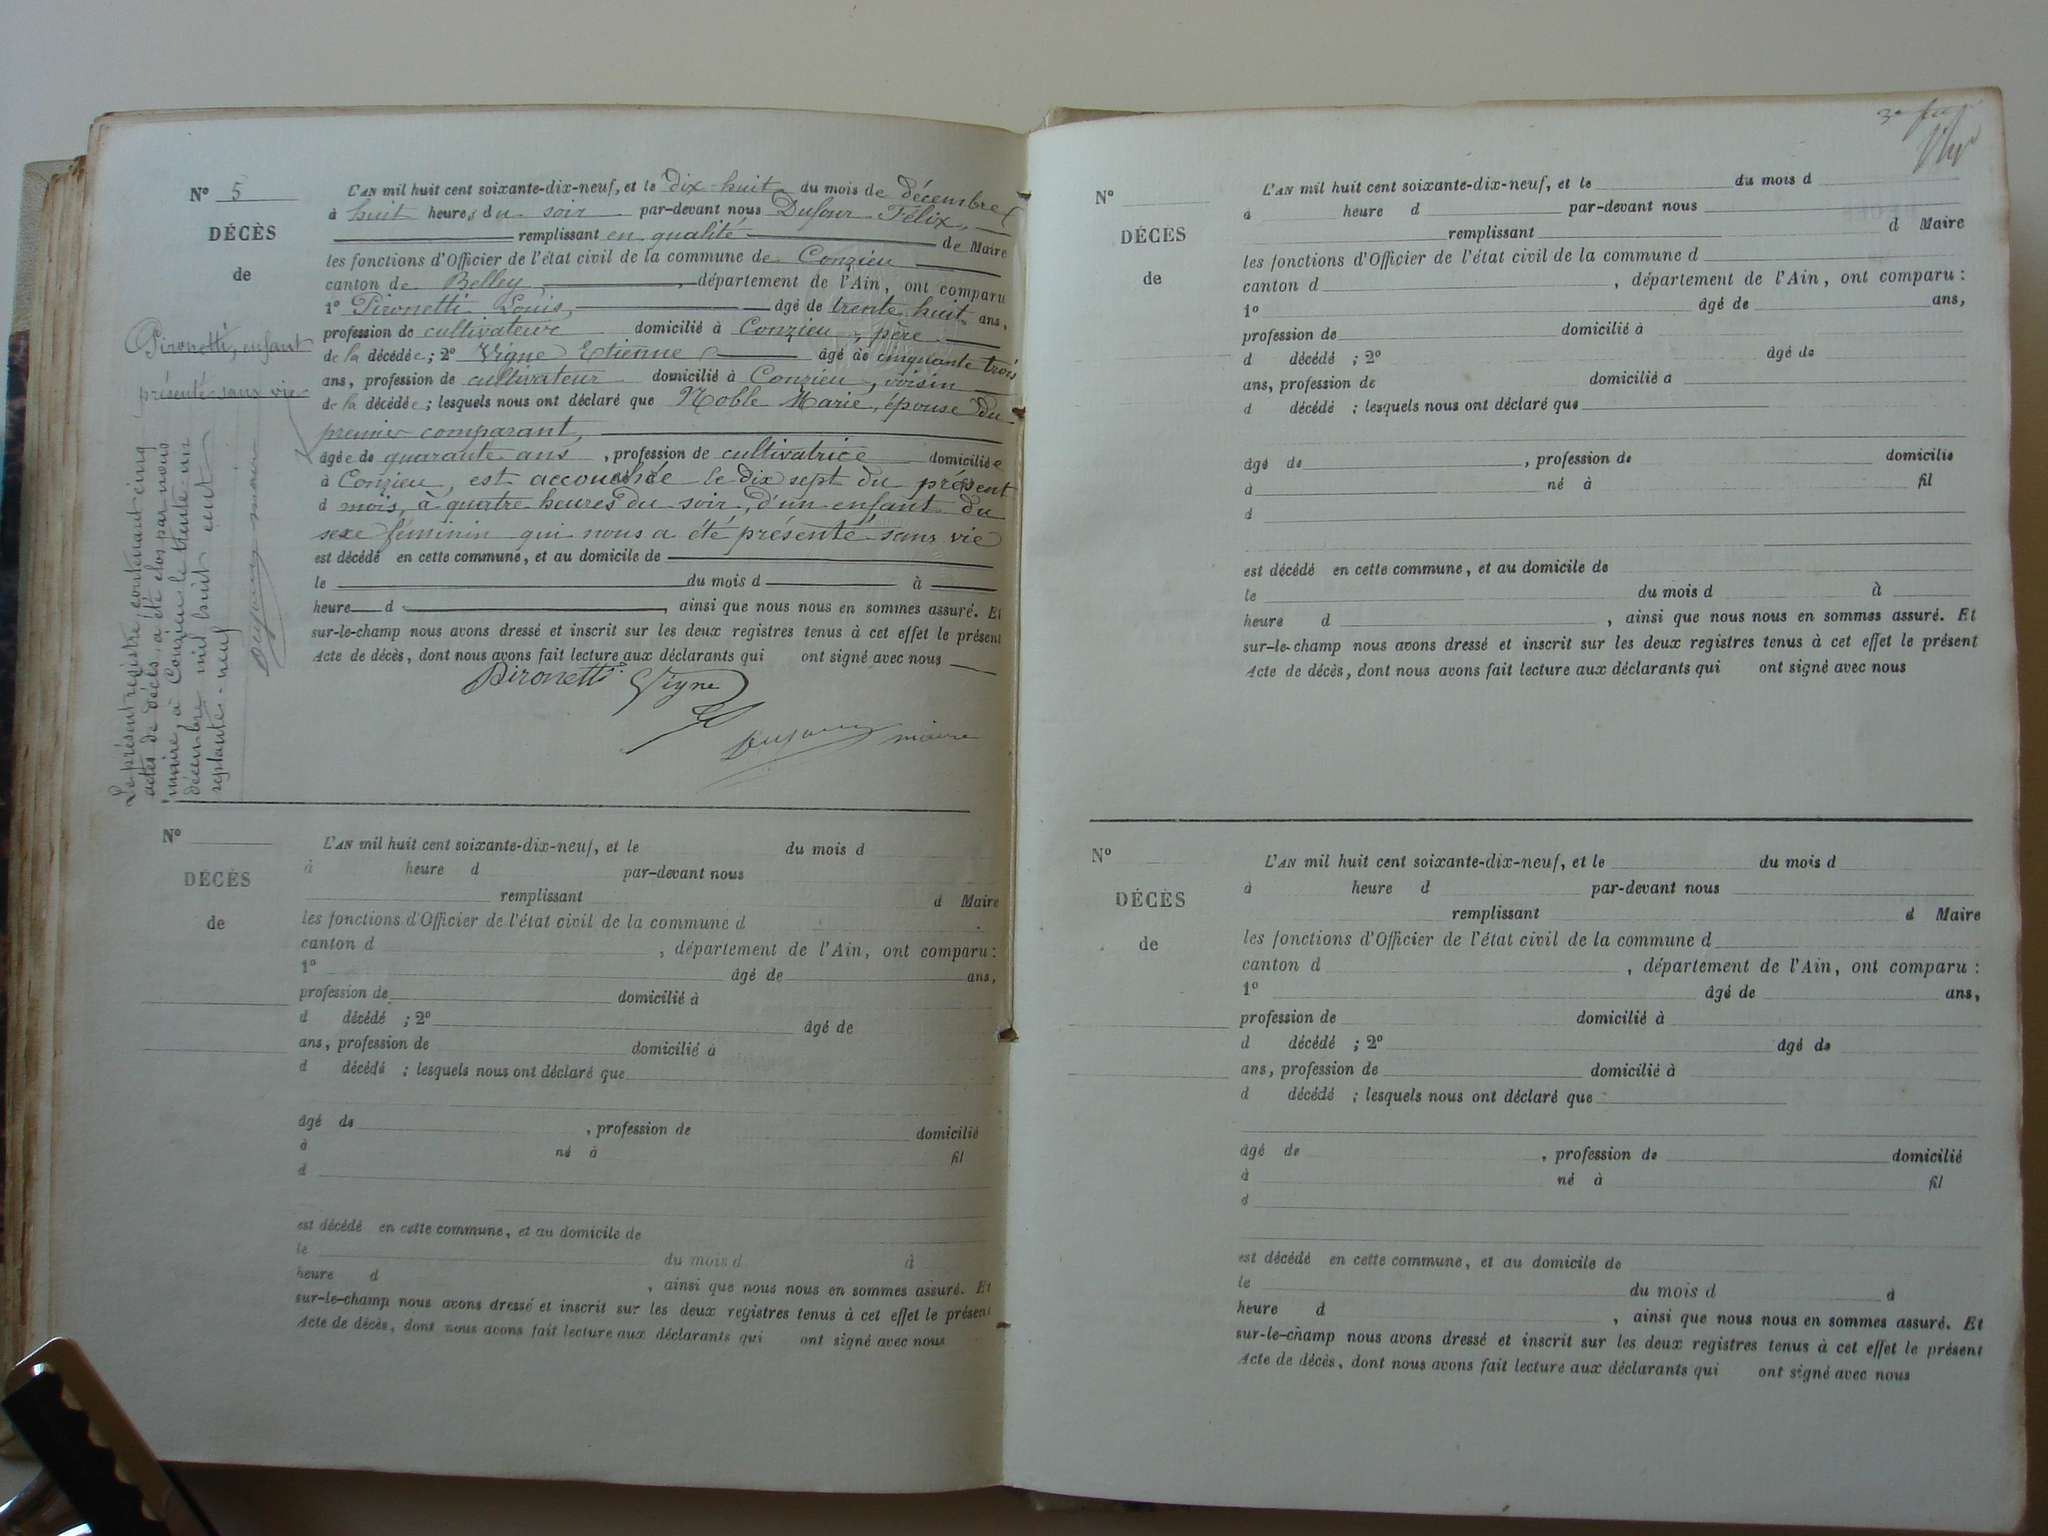 N° 5
DÉCÈS
de
Pironetti, enfant
présenté sans vie
L'AN mil huit cent soixante-dix-neuf, et le dix huit du mois de décembre
à huit heures du soir par-devant nous Dufour Félix,
remplissant en qualité de Maire
les fonctions d'Officier de l'état civil de la commune de Conzieu
canton de Belley, département de l'Ain, ont comparu
1° Pironetti Louis, âgé de trente huit ans,
profession de cultivateur domicilié à Conzieu, père
de la décédée; 2° Vigne Etienne âgé de cinquante trois
ans, profession de cultivateur domicilié à Conzieu, voisin
de la décédée; lesquels nous ont déclaré que Noble Marie, épouse du
premier comparant,
âgée de quarante ans, profession de cultivatrice domiciliée
à Conzieu, est accouchée le dix sept du présent
d mois, à quatre heures du soir, d'un enfant du
sexe féminin qui nous a été présenté sans vie
est décédé en cette commune, et au domicile de
le du mois d à
heure d , ainsi que nous nous en sommes assuré. Et
sur-le-champ nous avons dressé et inscrit sur les deux registres tenus à cet effet le présent
Acte de décès, dont nous avons fait lecture aux déclarants qui ont signé avec nous
Pironetti Vigne
Dufour maire
Le présent registre contenant cinq
actes de décès, a été clos par nous
maire, à Conzieu le trente-un
décembre mil huit cent
septante-neuf
Dufour maire
N°
DÉCÈS
de
L'AN mil huit cent soixante-dix-neuf, et le du mois d
à heure d par-devant nous
remplissant d Maire
les fonctions d'Officier de l'état civil de la commune d
canton d , département de l'Ain, ont comparu :
1° âgé de ans,
profession de domicilié à
d décédé ; 2° âgé de
ans, profession de domicilié à
d décédé ; lesquels nous ont déclaré que
âgé de , profession de domicilié
à né à fil
d
est décédé en cette commune, et au domicile de
le du mois d à
heure d , ainsi que nous nous en sommes assuré. Et
sur-le-champ nous avons dressé et inscrit sur les deux registres tenus à cet effet le présent
Acte de décès, dont nous avons fait lecture aux déclarants qui ont signé avec nous
3e
N°
DÉCÈS
de
L'AN mil huit cent soixante-dix-neuf, et le du mois d
à heure d par-devant nous
remplissant d Maire
les fonctions d'Officier de l'état civil de la commune d
canton d , département de l'Ain, ont comparu :
1° âgé de ans,
profession de domicilié à
d décédé ; 2° âgé de
ans, profession de domicilié à
d décédé ; lesquels nous ont déclaré que
âgé de , profession de domicilié
à né à fil
d
est décédé en cette commune, et au domicile de
le du mois d à
heure d , ainsi que nous nous en sommes assuré. Et
sur-le-champ nous avons dressé et inscrit sur les deux registres tenus à cet effet le présent
Acte de décès, dont nous avons fait lecture aux déclarants qui ont signé avec nous
N°
DÉCÈS
de
L'AN mil huit cent soixante-dix-neuf, et le du mois d
à heure d par-devant nous
remplissant d Maire
les fonctions d'Officier de l'état civil de la commune d
canton d , département de l'Ain, ont comparu :
1° âgé de ans,
profession de domicilié à
d décédé ; 2° âgé de
ans, profession de domicilié à
d décédé ; lesquels nous ont déclaré que
âgé de , profession de domicilié
à né à fil
d
est décédé en cette commune, et au domicile de
le du mois d à
heure d , ainsi que nous nous en sommes assuré. Et
sur-le-champ nous avons dressé et inscrit sur les deux registres tenus à cet effet le présent
Acte de décès, dont nous avons fait lecture aux déclarants qui ont signé avec nous